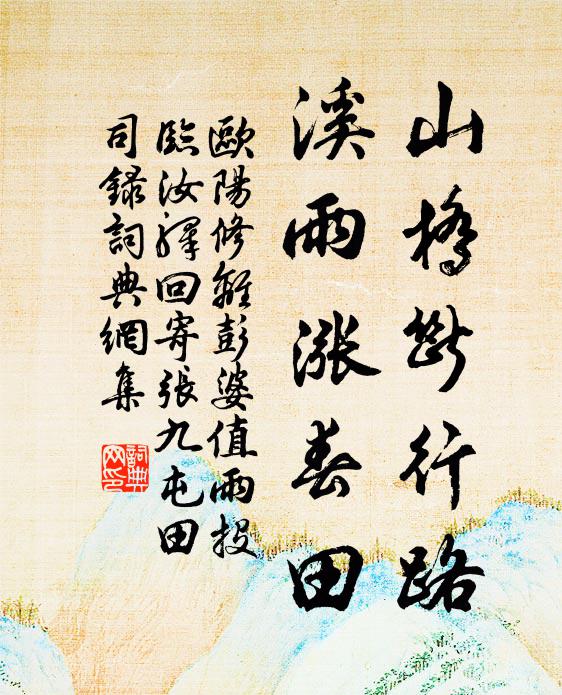 山橋斷行路
溪雨漲春田
歐陽修離彭婆值雨投
臨汝驛回寄張九屯田
司錄詞典網集
詞典
网印